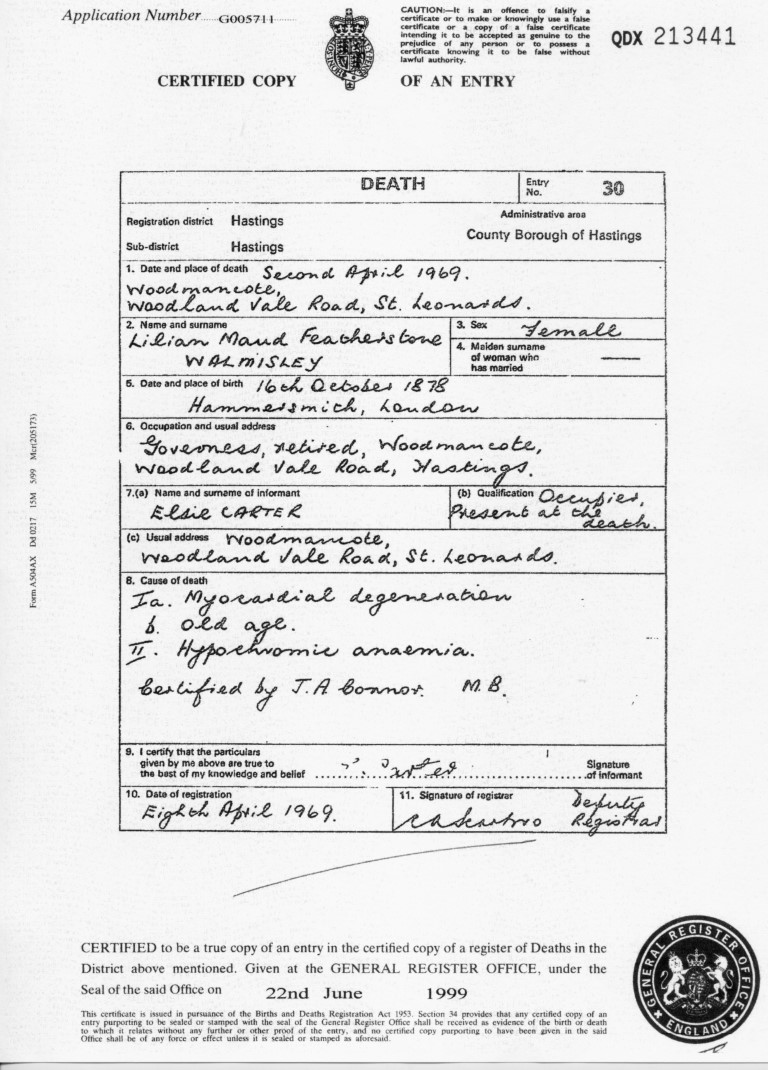 Application Number G005711
CAUTION:—It is an offence to falsify a
certificate or to make or knowingly use a false
certificate or a copy of a false certificate
intending it to be accepted as genuine to the
prejudice of any person or to possess a
certificate knowing it to be false without
lawful authority.
QDX 213441
CERTIFIED COPY OF AN ENTRY
DEATH
Entry No. 30
Registration district Hastings
Administrative area
Sub-district Hastings
County Borough of Hastings
1. Date and place of death Second April 1969.
Woodmancote,
Woodland Vale Road, St. Leonards.
2. Name and surname
Lilian Maud Featherstone
WALMISLEY
3. Sex Female
4. Maiden surname
of woman who
has married
5. Date and place of birth 16th October 1878
Hammersmith, London
6. Occupation and usual address
Governess, retired, Woodmancote,
Woodland Vale Road, Hastings.
7.(a) Name and surname of informant
Elsie CARTER
(b) Qualification Occupier,
Present at the
death.
(c) Usual address Woodmancote,
Woodland Vale Road, St. Leonards.
8. Cause of death
Ia. Myocardial degeneration
b. Old age.
II. Hypochromic anaemia.
Certified by J.A Connor. M.B.
9. I certify that the particulars
given by me above are true to
the best of my knowledge and belief
Signature
of informant
10. Date of registration
Eighth April 1969.
11. Signature of registrar
Deputy
Registrar
Form A504AX Dd 0217 15M 5/99 Mcr(205173)
CERTIFIED to be a true copy of an entry in the certified copy of a register of Deaths in the
District above mentioned. Given at the GENERAL REGISTER OFFICE, under the
Seal of the said Office on 22nd June 1999
This certificate is issued in pursuance of the Births and Deaths Registration Act 1953. Section 34 provides that any certified copy of an
entry purporting to be sealed or stamped with the seal of the General Register Office shall be received as evidence of the birth or death
to which it relates without any further or other proof of the entry, and no certified copy purporting to have been given in the said
Office shall be of any force or effect unless it is sealed or stamped as aforesaid.
GENERAL REGISTER OFFICE
ENGLAND